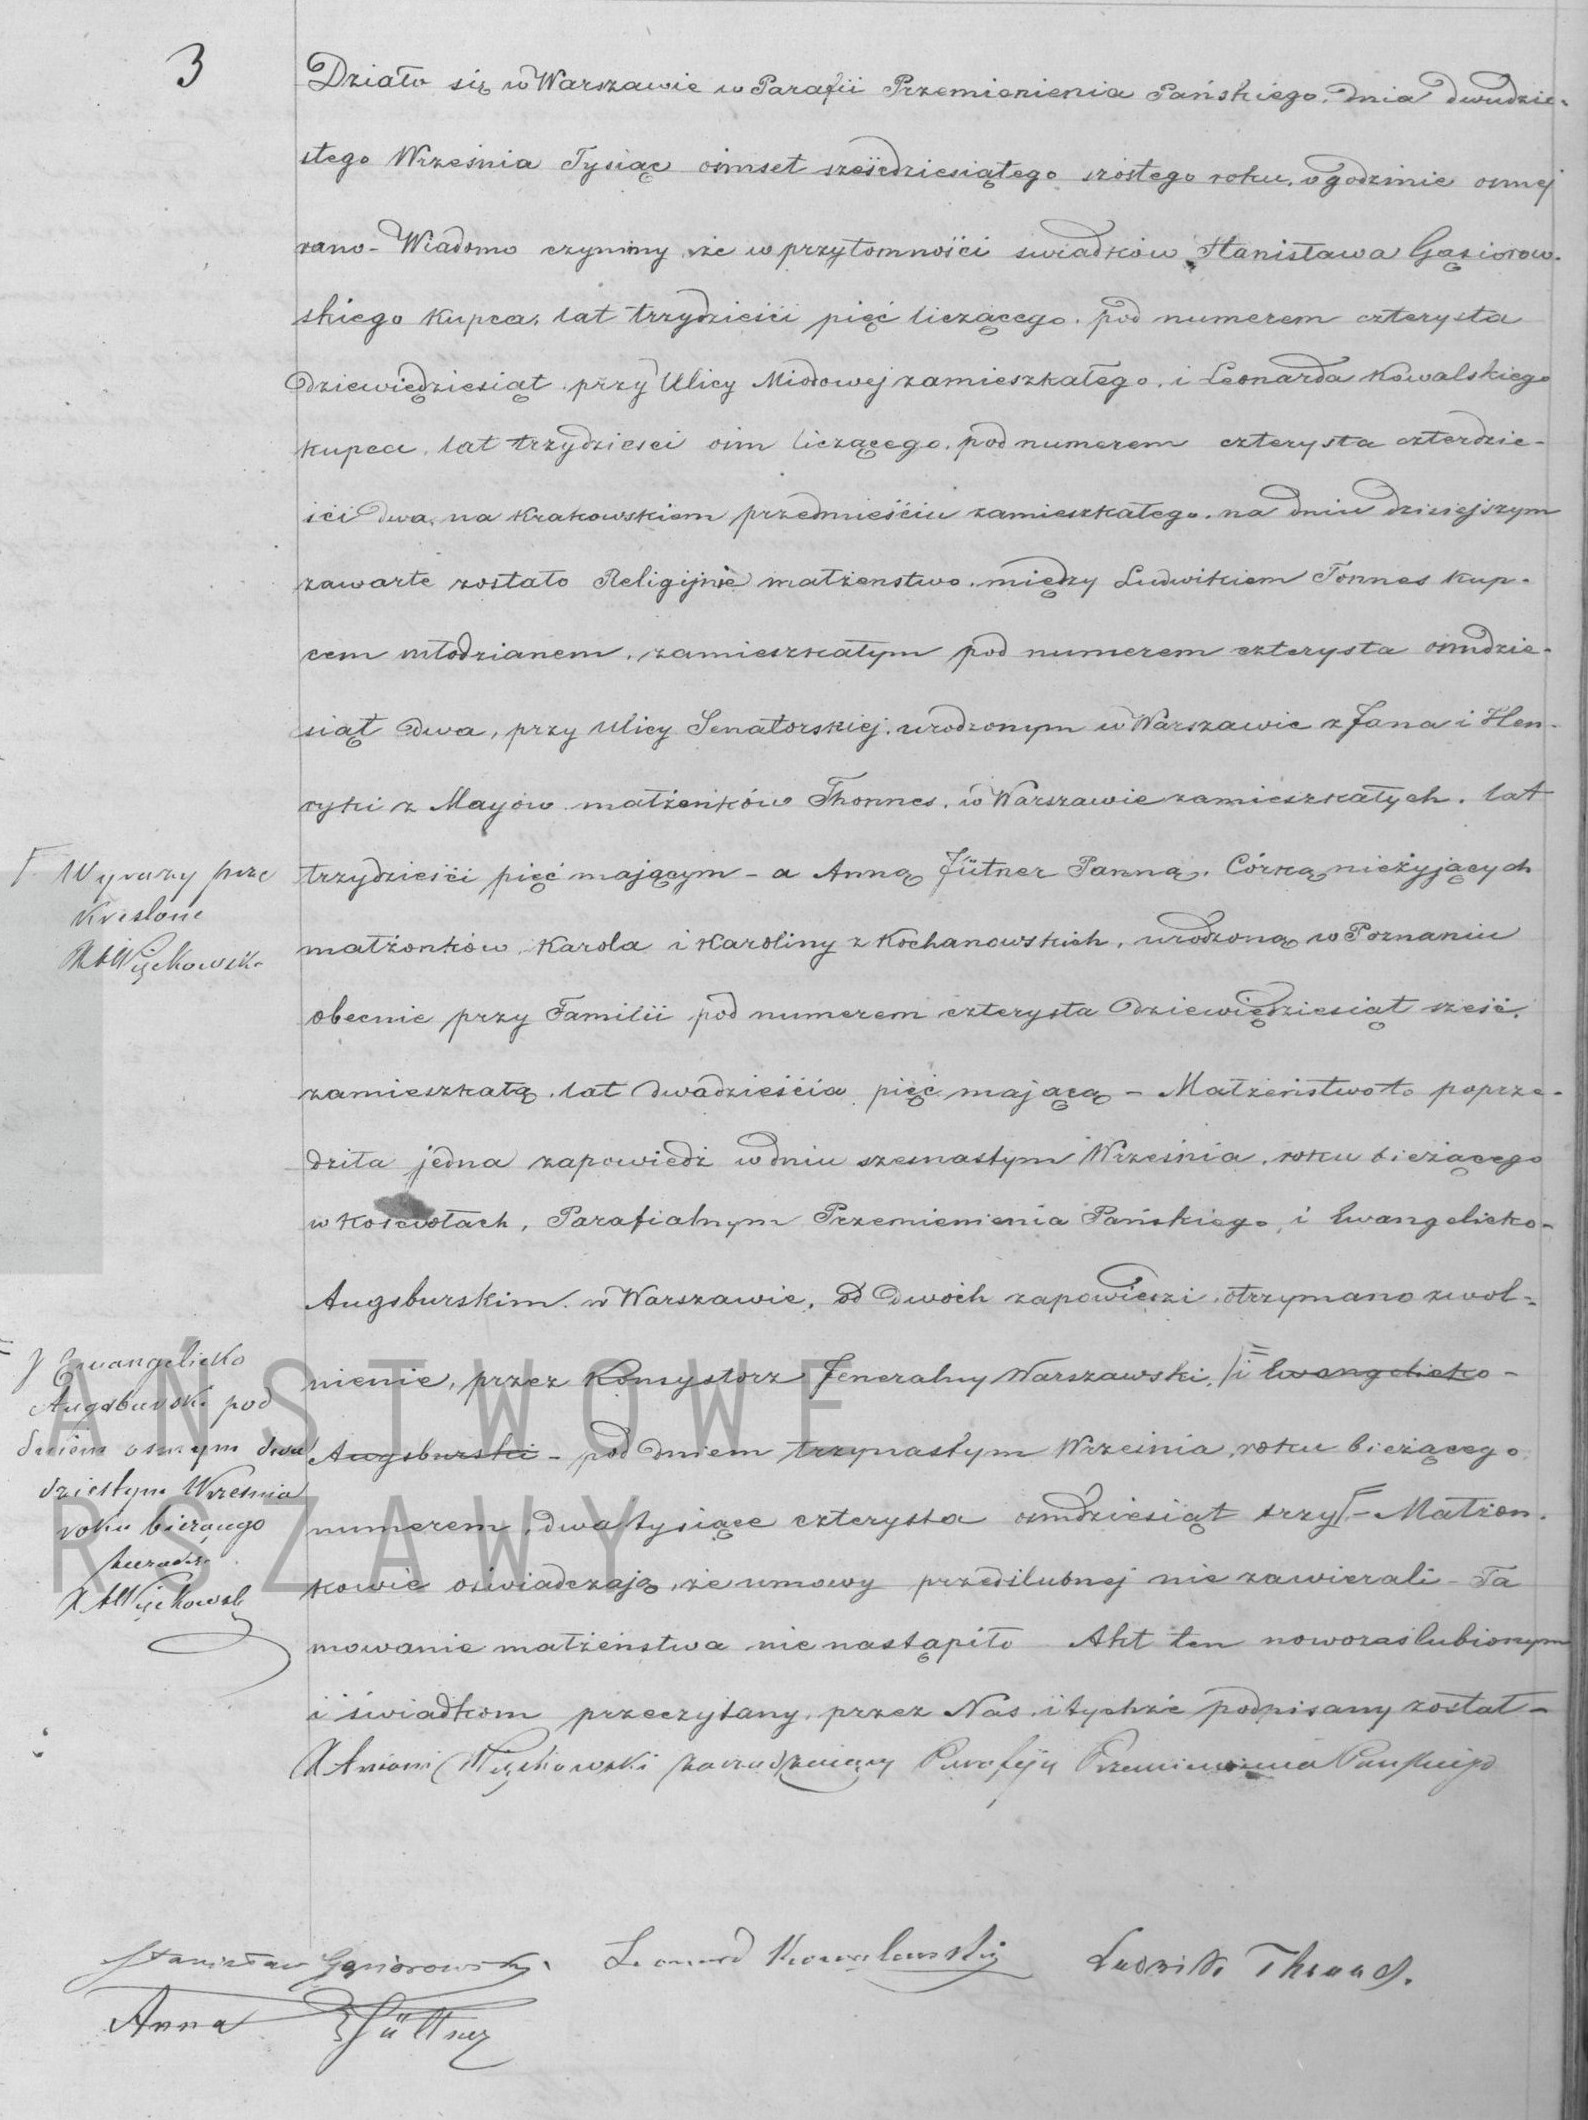 3
Działo się w Warszawie w Parafii Przemienienia Pańskiego. Dnia dwudzie-
stego Września Tysiąc ośmset sześćdziesiątego szóstego roku, o godzinie osmej
rano - Wiadomo czynimy, że w przytomności swiadków Stanisława Gąsiorow-
skiego kupca, lat trzydzieści pięć liczącego, pod numerem czterysta
dziewięździesiąt przy Ulicy Miodowej zamieszkałego, i Leonarda Kowalskiego
kupca, lat trzydziesci ośm liczącego, pod numerem czterysta czterdzie-
ści dwa, na Krakowskiem przedmieściu zamieszkałego, na dniu dzisiejszym
zawarte zostało Religijnie małżenstwo, między Ludwikiem Tonnes kup-
cem młodzianem, zamieszkałym pod numerem czterysta ośmdzie-
siąt dwa, przy Ulicy Senatorskiej, urodzonym w Warszawie z Jana i Hen-
ryki z Mayów małżonków Thonnes, w Warszawie zamieszkałych, lat
trzydzieści pięć mającym - a Anną Jütner Panną, Córką nieżyjących
małżonków Karola i Karoliny z Kochanowskich, urodzoną w Poznaniu
obecnie przy Familii pod numerem czterysta dziewięździesiąt sześć,
zamieszkałą, lat dwadzieścia pięć mającą - Małżeństwo to poprze-
dziła jedna zapowiedź w dniu szesnastym Września, roku bieżącego
w kosciołach, Parafialnym Przemienienia Pańskiego, i Ewangelicko-
Augsburskim w Warszawie, Od dwóch zapowiedzi otrzymano zwol-
nienie, przez Konsystorz Jeneralny Warszawski, i Ewangelicko-
Augsburski - pod dniem trzynastym Września, roku bieżącego
numerem, dwa tysiące czterysta ośmdziesiąt trzy - Małżon-
kowie oświadczają, że umowy przedślubnej nie zawierali - Ta
mowanie małżeństwa nie nastąpiło Akt ten nowozaślubionym
i świadkom przeczytany, przez Nas i tychże podpisany został -
X Antoni Więckowski Parafiju Przemienienia Pańskiego
Wyrazy prze
kreslone
X A Więckowski
i Ewangelicko
Augsburski pod
dniem osmym dwu
dziestym Wrzesnia
roku bieżącego
X A Więckowski
Stanisław Gąsiorowski. Leonard Kowalewski Ludwik Thonnes.
Anna Jüttner
AŃSTWOWE
RSZAWY